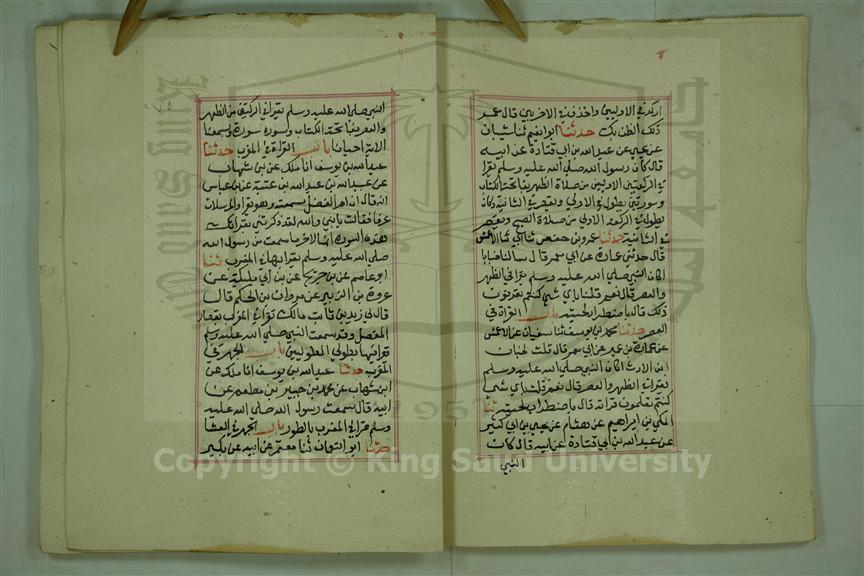 اركد في الاوليين واخذف في الاخريين قال عمر
ذلك الظن بك حدثنا ابو نعيم ثنا شيبان
عن يحيى عن عبدالله بن ابي قتادة عن ابيه
قال كان رسول الله صلى الله عليه وسلم يقرا
في الركعتين الاوليين من صلاة الظهر بفاتحة الكتاب
وسورتين يطول في الاولى ويقصر في الثانية وكان
يطول في الركعة الاولى من صلاة الصبح ويقصر
في الثانية حدثنا عمر بن حفص ثنا ابي ثنا الاعمش
قال حدثني عمارة عن ابي معمر قال سالنا خبابا
اكان النبي صلى الله عليه وسلم يقرا في الظهر
والعصر قال نعم قلنا باي شي كنتم تعرفون
ذلك قال باضطراب لحيته باب القراة في
العصر حدثنا محمد بن يوسف ثنا سفيان عن الاعمش
عن عمارة بن عمير عن ابي معمر قال قلت لخباب
ابن الارث اكان النبي صلى الله عليه وسلم
يقرا في الظهر والعصر قال نعم قلنا باي شي
كنتم تعلمون قراته قال باضطراب لحيته ثنا
المكي بن ابراهيم عن هشام عن يحيى بن ابي كثير
عن عبدالله بن ابي قتادة عن ابيه قال كان
النبي
النبي صلى الله عليه وسلم يقرا في الركعتين من الظهر
والعصر بفاتحة الكتاب وسورة سورة ويسمعنا
الاية احيانا باب القراة في المغرب حدثنا
عبدالله بن يوسف انا ملك عن بن شهاب
عن عبيدالله بن عبدالله بن عتبة عن بن عباس
انه قال ان ام الفضل سمعته وهو يقرا والمرسلات
عرفا فقالت يا بني والله لقد ذكرتني بقراتك
هذه السورة انها لاخر ما سمعت من رسول الله
صلى الله عليه وسلم يقرا بها في المغرب ثنا
ابو عاصم عن بن جريج عن بن ابي مليكة عن
عروة بن الزبير عن مروان بن الحكم قال
قال لي زيد بن ثابت مالك تقرا في المغرب بقصار
المفصل وقد سمعت النبي صلى الله عليه وسلم
يقرا فيها بطولى الطوليين باب الجهر في
المغرب حدثنا عبدالله بن يوسف انا ملك عن
ابن شهاب عن محمد بن جبير بن مطعم عن
ابيه قال سمعت رسول الله صلى الله عليه
وسلم قرا في المغرب بالطور باب الجهر في العشا
حدثنا ابو النعمان ثنا معتمر عن ابيه عن بكير
جامعة الملك سعود
King Saud University
1957
Copyright © King Saud University